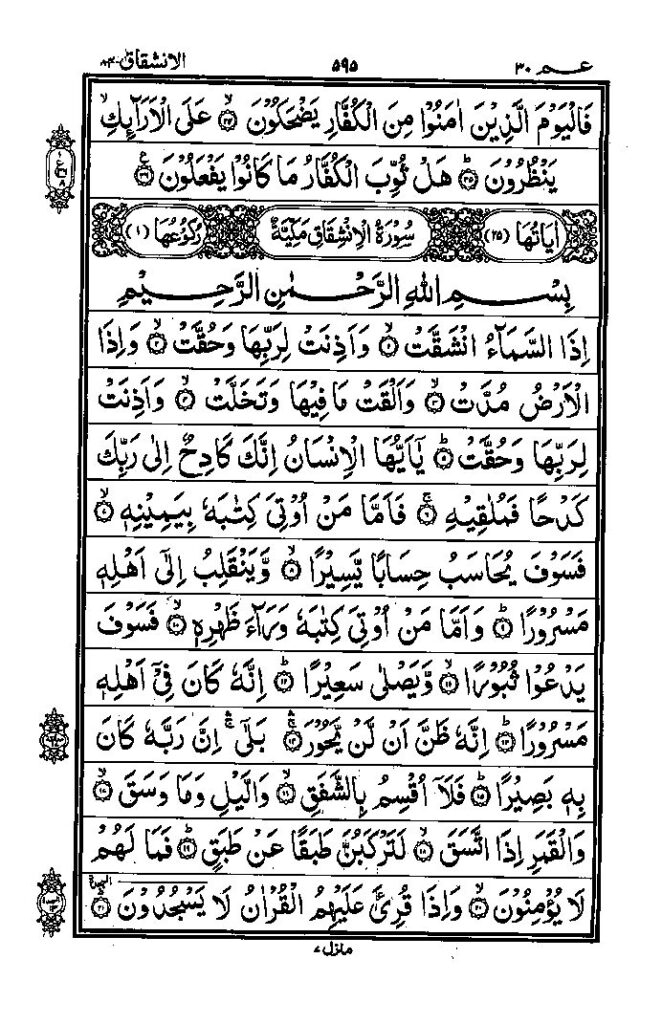 عـم ٣٠ ٥٩٥ الانشقاق ٨٤
فَالْيَوْمَ الَّذِيْنَ اٰمَنُوْا مِنَ الْكُفَّارِ يَضْحَكُوْنَ ۙ‏﴿۳۴﴾ عَلَى الْاَرَآئِكِ ۙ
يَنْظُرُوْنَ ؕ‏﴿۳۵﴾ هَلْ ثُوِّبَ الْكُفَّارُ مَا كَانُوْا يَفْعَلُوْنَ ‏﴿۳۶﴾ ع
اٰيَاتُهَا (٢٥) سُوْرَةُ الْاِنْشِقَاقِ مَكِّيَّةٌ رُكُوْعُهَا (١)
بِسْمِ اللّٰهِ الرَّحْمٰنِ الرَّحِيْمِ
اِذَا السَّمَآءُ انْشَقَّتْ ۙ‏﴿۱﴾ وَاَذِنَتْ لِرَبِّهَا وَحُقَّتْ ۙ‏﴿۲﴾ وَاِذَا
الْاَرْضُ مُدَّتْ ۙ‏﴿۳﴾ وَاَلْقَتْ مَا فِيْهَا وَتَخَلَّتْ ۙ‏﴿۴﴾ وَاَذِنَتْ
لِرَبِّهَا وَحُقَّتْ ؕ‏﴿۵﴾ يٰۤاَيُّهَا الْاِنْسَانُ اِنَّكَ كَادِحٌ اِلٰى رَبِّكَ
كَدْحًا فَمُلٰقِيْهِ ۚ‏﴿۶﴾ فَاَمَّا مَنْ اُوْتِىَ كِتٰبَهٗ بِيَمِيْنِهٖ ۙ‏﴿۷﴾
فَسَوْفَ يُحَاسَبُ حِسَابًا يَّسِيْرًا ۙ‏﴿۸﴾ وَّيَنْقَلِبُ اِلٰٓى اَهْلِهٖ
مَسْرُوْرًا ؕ‏﴿۹﴾ وَاَمَّا مَنْ اُوْتِىَ كِتٰبَهٗ وَرَآءَ ظَهْرِهٖ ۙ‏﴿۱۰﴾ فَسَوْفَ
يَدْعُوْا ثُبُوْرًا ۙ‏﴿۱۱﴾ وَّيَصْلٰى سَعِيْرًا ؕ‏﴿۱۲﴾ اِنَّهٗ كَانَ فِىْٓ اَهْلِهٖ
مَسْرُوْرًا ؕ‏﴿۱۳﴾ اِنَّهٗ ظَنَّ اَنْ لَّنْ يَّحُوْرَ ۛۚ‏﴿۱۴﴾ بَلٰٓى ۛۚ اِنَّ رَبَّهٗ كَانَ
بِهٖ بَصِيْرًا ؕ‏﴿۱۵﴾ فَلَآ اُقْسِمُ بِالشَّفَقِ ۙ‏﴿۱۶﴾ وَالَّيْلِ وَمَا وَسَقَ ۙ‏﴿۱۷﴾
وَالْقَمَرِ اِذَا اتَّسَقَ ۙ‏﴿۱۸﴾ لَتَرْكَبُنَّ طَبَقًا عَنْ طَبَقٍ ؕ‏﴿۱۹﴾ فَمَا لَهُمْ
لَا يُؤْمِنُوْنَ ۙ‏﴿۲۰﴾ وَاِذَا قُرِئَ عَلَيْهِمُ الْقُرْاٰنُ لَا يَسْجُدُوْنَ ۩‏﴿۲۱﴾ السجدة
منزل ٧